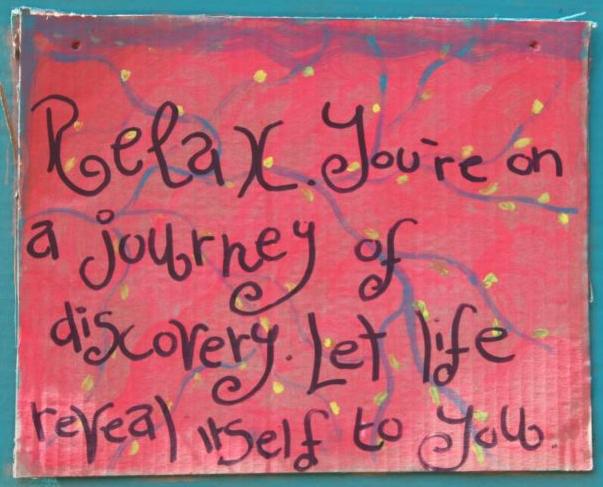 Relax. You're on
a journey of
discovery. Let life
reveal itself to you.